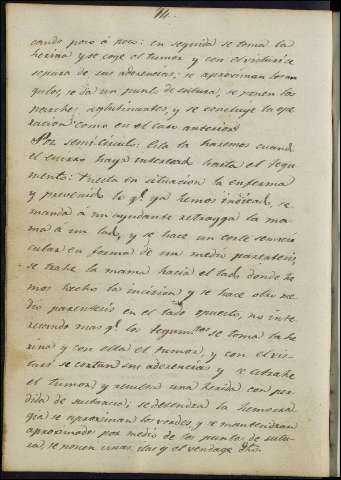 14.
cando poco á poco: en seguida se toma la
herina y se coge el tumor y con el visturí se
separa de sus aderencias; se aproximan los an
gulos, se da un punto de sutura, se ponen los
parches aglutinantes, y se concluye la ope
racion como en el caso anterior
Por semi-circulo: Esta la haremos cuando
el cancro haya interesado hasta el tegu
mento: Puesta en situacion la enferma
y prevenido lo q.e ya hemos indicado, se
manda á un ayudante retrayga la ma
ma á un lado, y se hace un corte semicir
cular en forma de un medio parentesis,
se trahe la mama hacia el lado donde he
mos hecho la incision y se hace otro me
dio parentesis en el lado opuesto, no inte
resando mas q.e los tegum.tos se toma la he
rina y con ella el tumor, y con el vis
turí se cortan sus aderencias y se extrahe
el tumor y resulta una herida con per
dida de substancia; se detendra la hemorra
gia se aproximan los vordes, y se mantendran
aproximados por medio de los puntos de sutu
ra, se ponen unas ilas y el vendage &c.